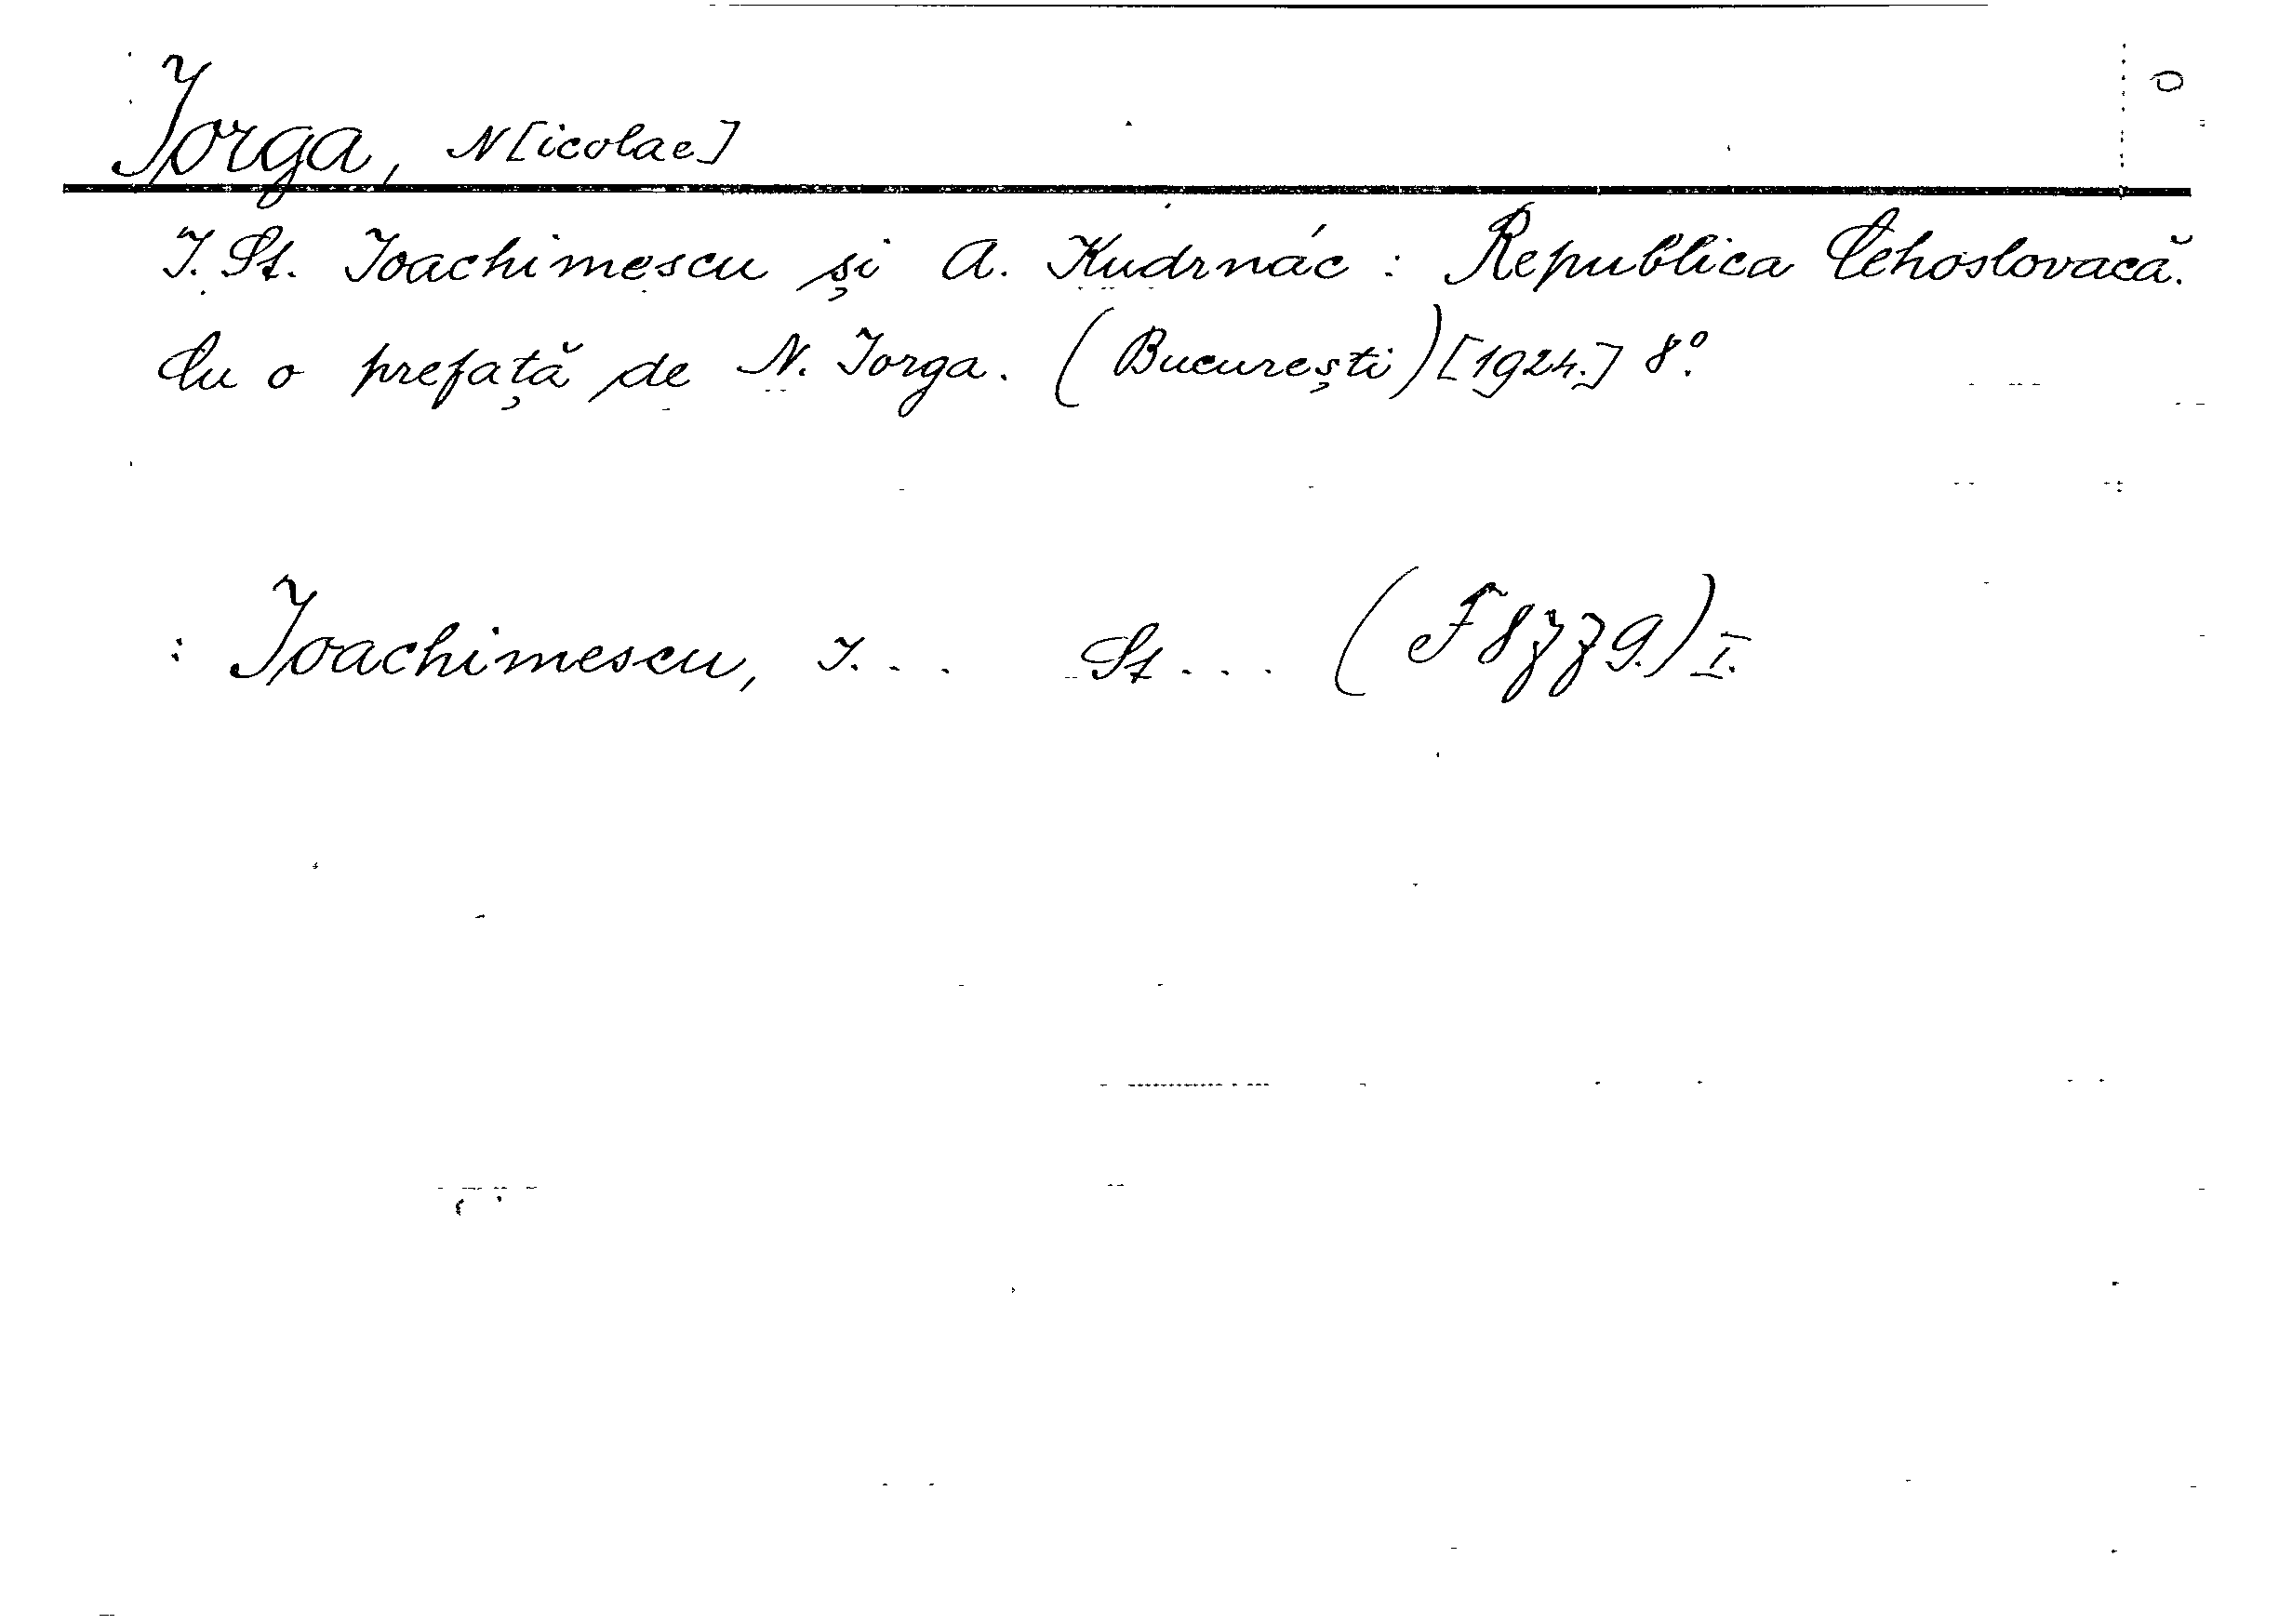 Iorga, N[icolae]
I. St. Ioachimescu și A. Kudrnác : Republica Cehoslovacă.
Cu o prefață de N. Iorga. (București) [1924.] 8°.
: Ioachimescu, I... St... (F 8779.) I.